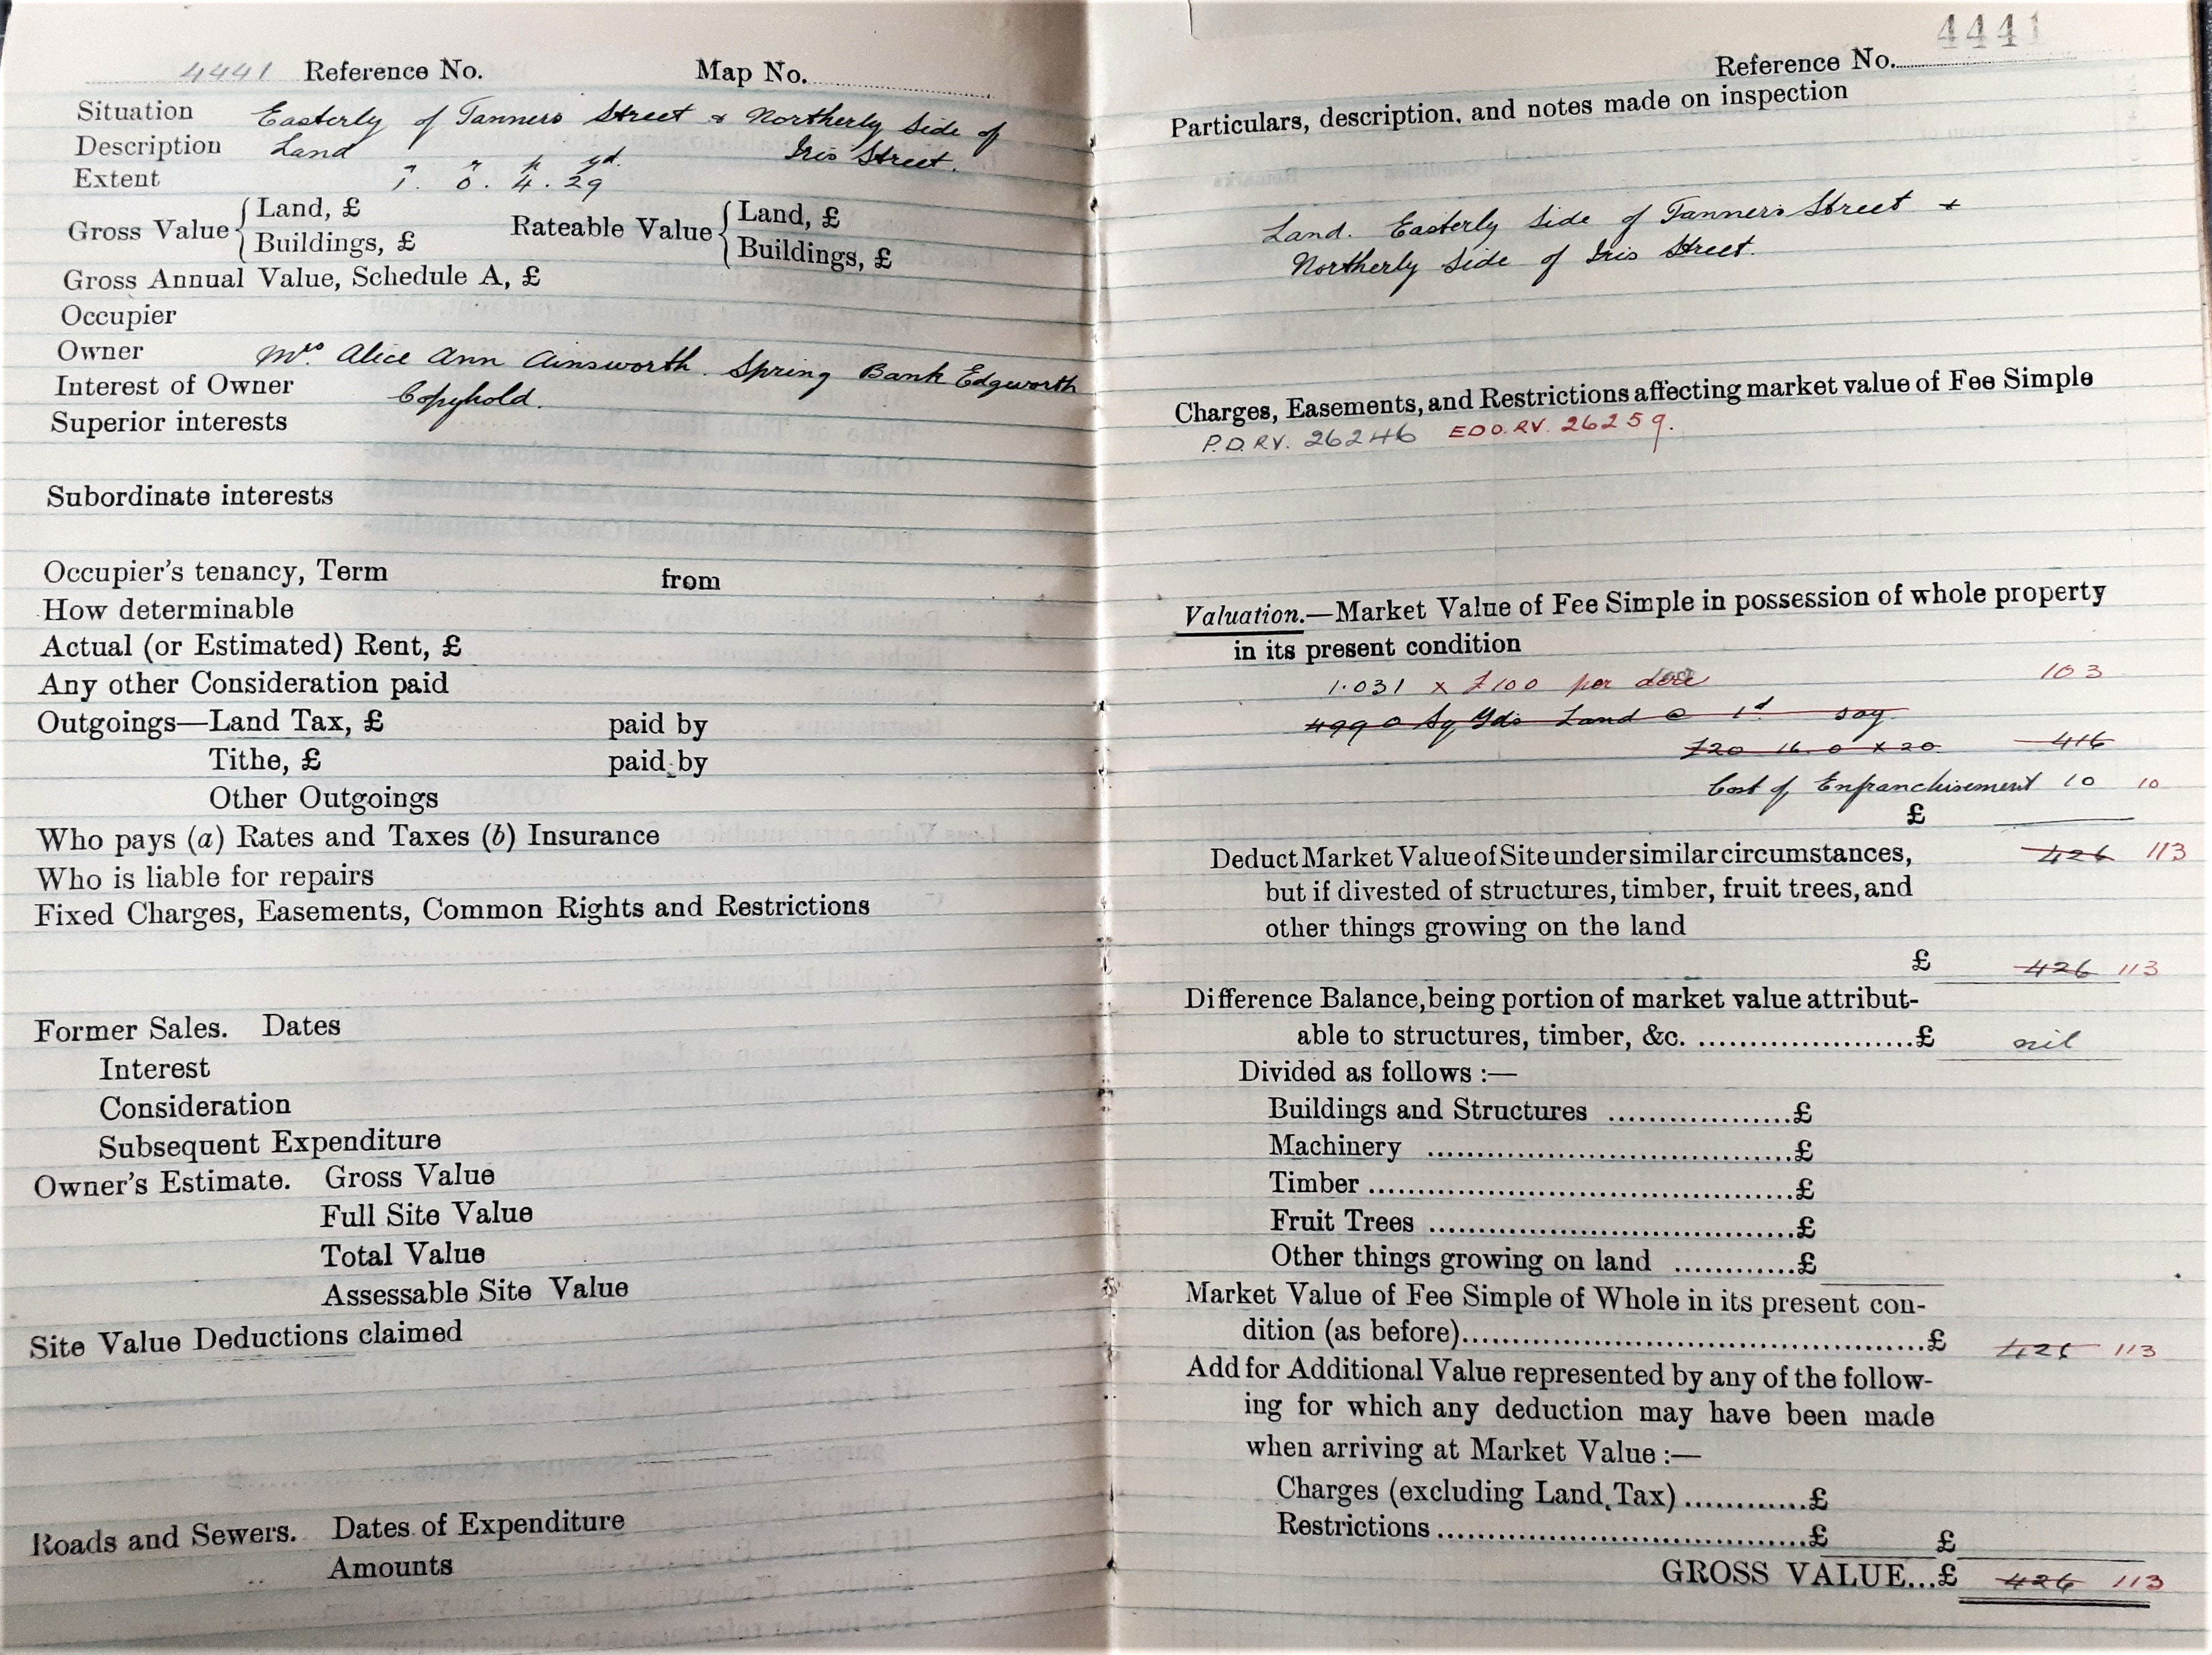 4441 Reference No. Map No.
Situation Easterly of Tanners Street & Northerly Side of
Description Land Iris Street.
a r p yd.
Extent 1. 0. 4. 29
Gross Value { Land, £ Rateable Value { Land, £
Buildings, £ Buildings, £
Gross Annual Value, Schedule A, £
Occupier
Owner Mrs Alice Ann Ainsworth. Spring Bank Edgworth
Interest of Owner Copyhold.
Superior interests
Subordinate interests
Occupier's tenancy, Term from
How determinable
Actual (or Estimated) Rent, £
Any other Consideration paid
Outgoings—Land Tax, £ paid by
Tithe, £ paid by
Other Outgoings
Who pays (a) Rates and Taxes (b) Insurance
Who is liable for repairs
Fixed Charges, Easements, Common Rights and Restrictions
Former Sales. Dates
Interest
Consideration
Subsequent Expenditure
Owner's Estimate. Gross Value
Full Site Value
Total Value
Assessable Site Value
Site Value Deductions claimed
Roads and Sewers. Dates of Expenditure
Amounts
4441
Reference No.
Particulars, description, and notes made on inspection
Land. Easterly Side of Tanners Street +
Northerly Side of Iris Street.
Charges, Easements, and Restrictions affecting market value of Fee Simple
P.D.RV. 26246 EDO.RV. 26259.
Valuation.—Market Value of Fee Simple in possession of whole property
in its present condition
1.031 x £100 per acre 103
4990 Sq Yds Land @ 1d say
£20 16. 0 x 20 416
Cost of Enfranchisement 10 10
£
Deduct Market Value of Site under similar circumstances, 426 113
but if divested of structures, timber, fruit trees, and
other things growing on the land
£ 426 113
Difference Balance, being portion of market value attribut-
able to structures, timber, &c. ......................£ nil
Divided as follows :—
Buildings and Structures ..................£
Machinery ....................................£
Timber..........................................£
Fruit Trees ....................................£
Other things growing on land ............£
Market Value of Fee Simple of Whole in its present con-
dition (as before)..............................................£ 426 113
Add for Additional Value represented by any of the follow-
ing for which any deduction may have been made
when arriving at Market Value :—
Charges (excluding Land Tax) ............£
Restrictions.....................................£ £
GROSS VALUE...£ 426 113